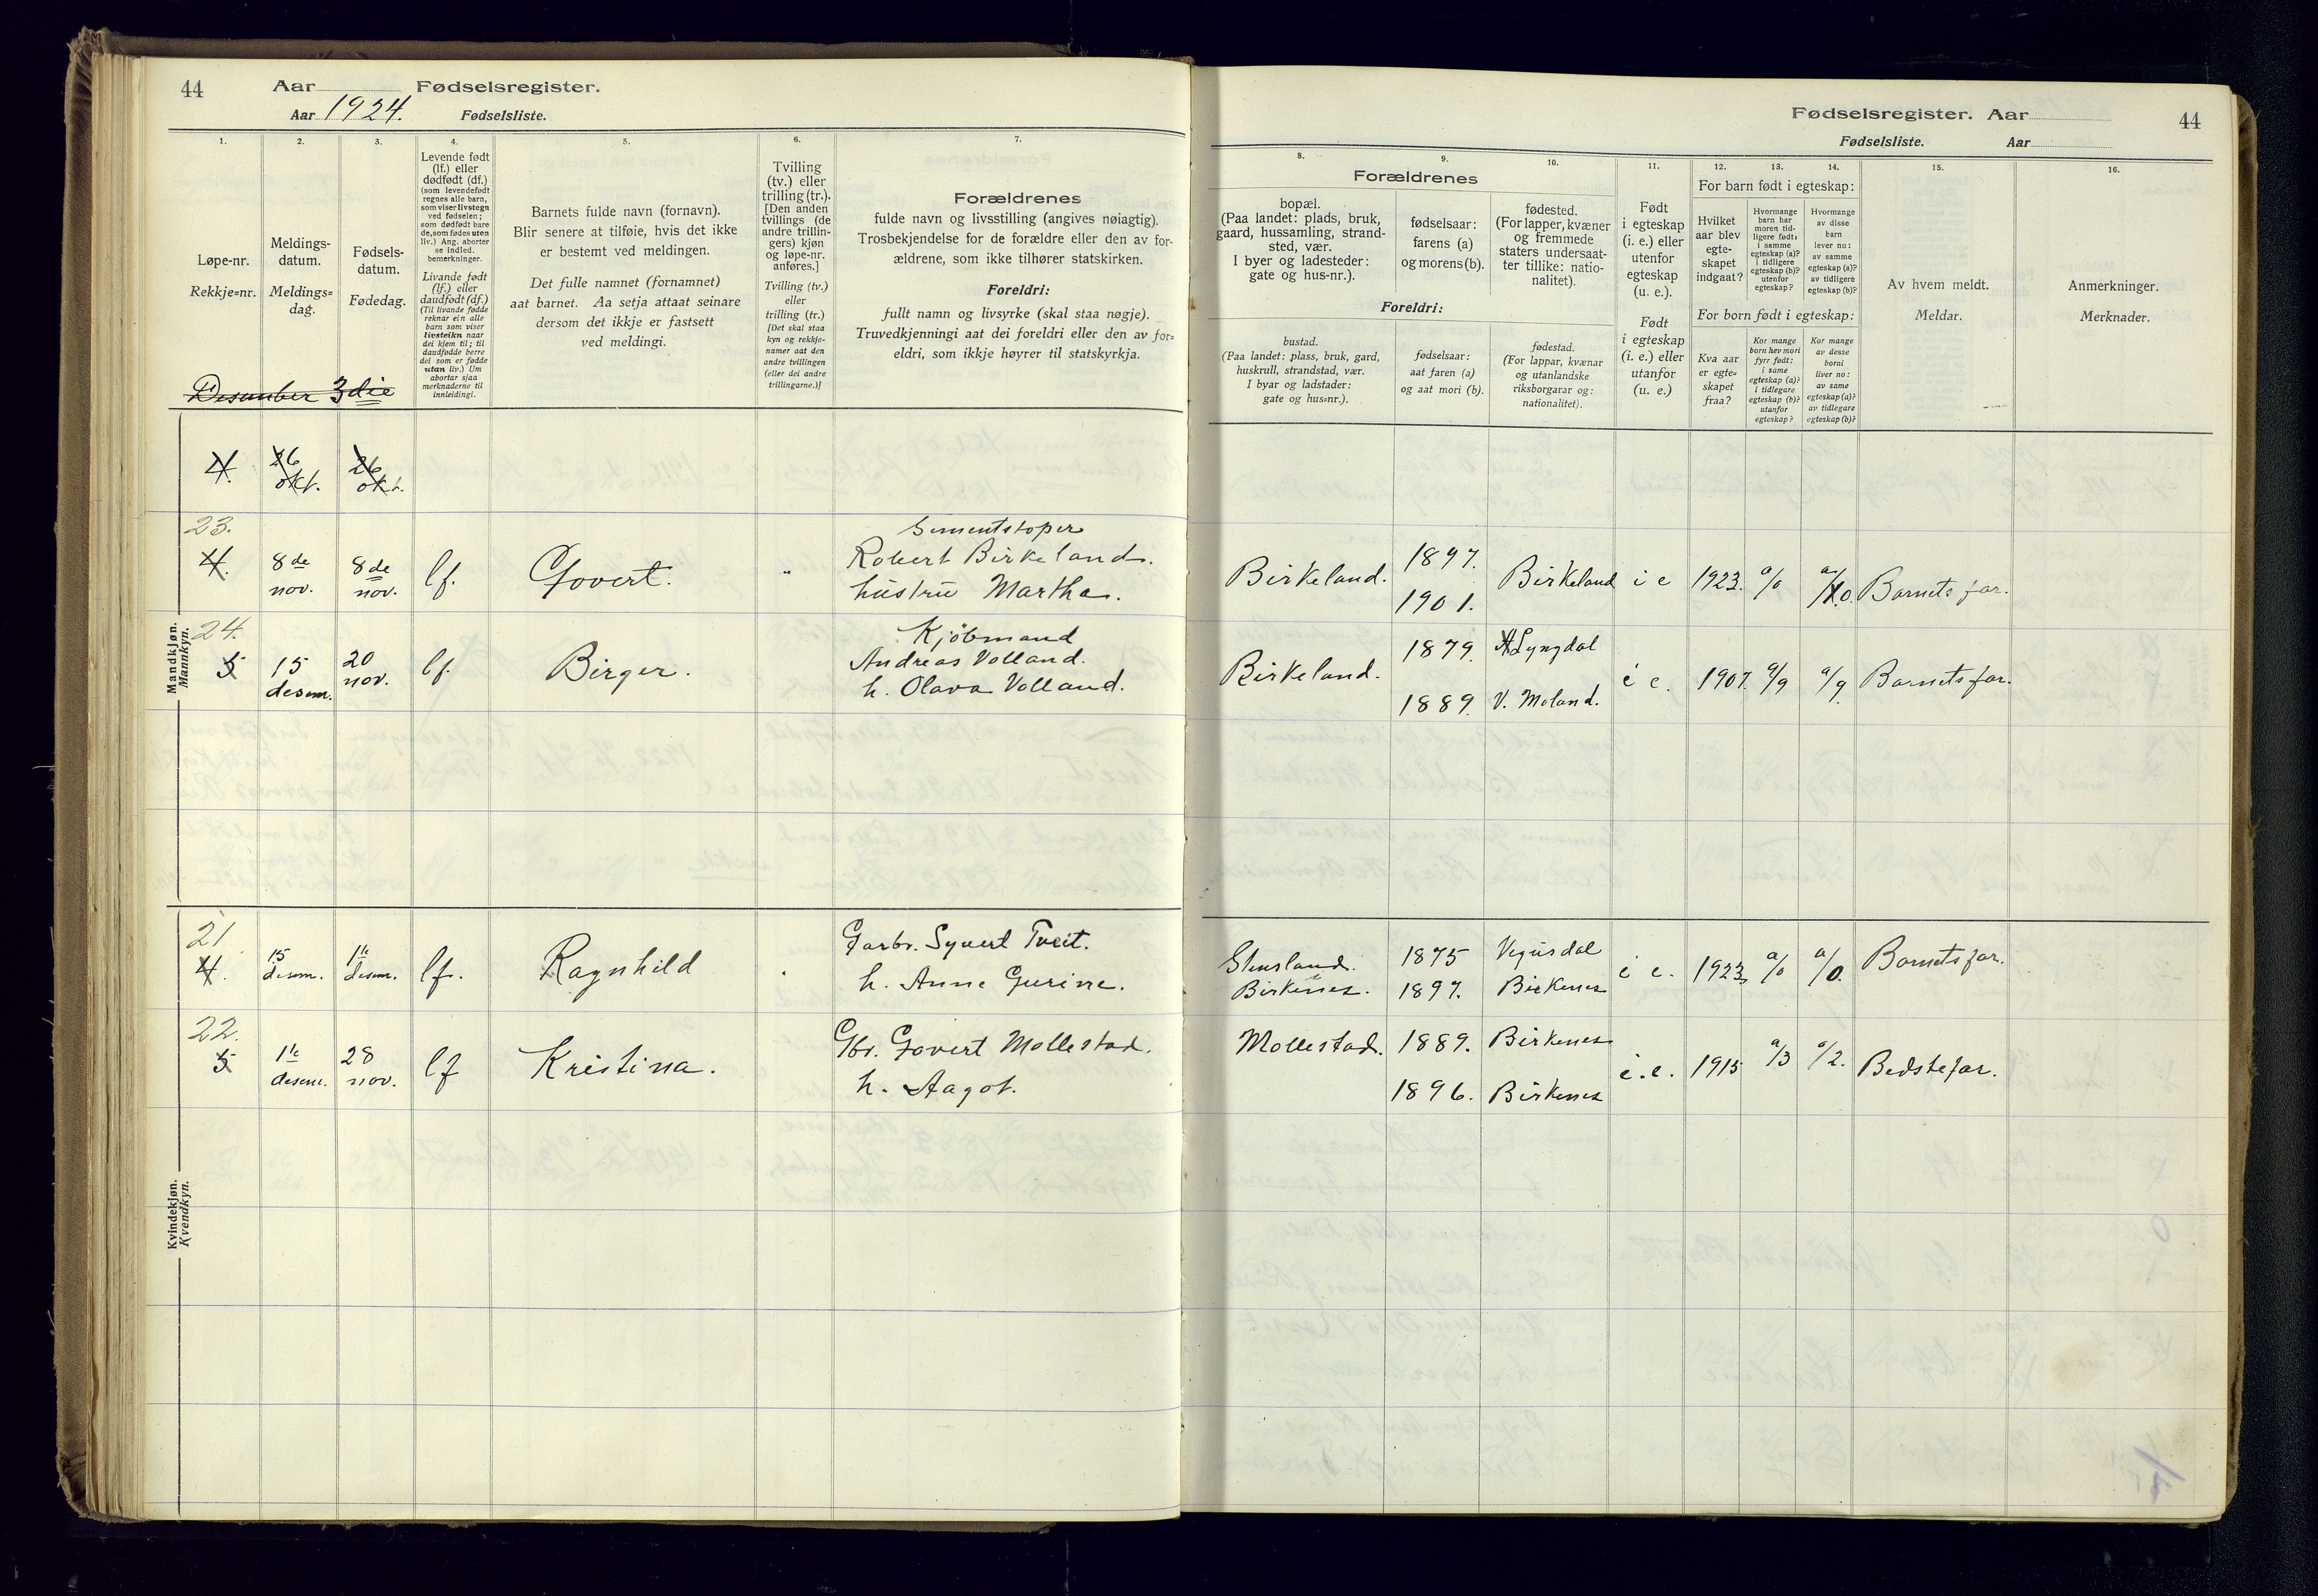 44
Aar Fødselsregister.
Aar 1924. Fødselsliste.
1.
2.
3.
4.
5.
6.
7.
Løpe-nr.
Rekkje=nr.
Meldings-
datum.
Meldings=
dag.
Fødsels-
datum.
Fødedag.
Levende født
(lf.) eller
dødfødt (df.)
(som levendefødt
regnes alle barn,
som viser livstegn
ved fødselen;
som dødfødt bare
de, som fødes uten
liv.) Ang. aborter
se indled.
bemerkninger.
Livande født
(lf.) eller
daudfødt (df.)
(Til livande fødde
reknar ein alle
barn som viser
livsteikn naar
dei kjem til; til
daudfødde berre
dei som er fødde
utan liv.) Um
abortar sjaa
merknaderne til
innleidingi.
Barnets fulde navn (fornavn).
Blir senere at tilføie, hvis det ikke
er bestemt ved meldingen.
Det fulle namnet (fornamnet)
aat barnet. Aa setja attaat seinare
dersom det ikkje er fastsett
ved meldingi.
Tvilling
(tv.) eller
trilling (tr.).
[Den anden
tvillings (de
andre trillin-
gers) kjøn
og løpe-nr.
anføres.]
Tvilling (tv.)
eller
trilling (tr.)
[Det skal staa
kyn og rekkje-
numer aat den
andre tvillingen
(eller dei andre
trillingarne.)]
Forældrenes
fulde navn og livsstilling (angives nøiagtig).
Trosbekjendelse for de forældre eller den av for-
ældrene, som ikke tilhører statskirken.
Foreldri:
fullt namn og livsyrke (skal staa nøgje).
Truvedkjenningi aat dei foreldri eller den av for=
eldri, som ikkje høyrer til statskyrkja.
Desember 3die
Mandkjøn.
Mannkyn.
4. 26 okt. 26 okt.
23.
4. 8de nov. 8de nov. lf. Govert. "
Sementstøper
Robert Birkeland.
hustru Martha.
24.
5 15 desem. 20 nov. lf. Birger.
Kjöbmand
Andreas Volland.
h. Olava Volland.
Kvindekjøn.
Kvendkyn.
21
4. 15 desem. 1te desem. lf. Ragnhild
Garbr. Syvert Tveit.
h. Anne Gurine.
22.
5 1te desem. 28 nov. lf Kristina.
Gbr. Govert Mollestad.
h. Aagot.
Fødselsregister. Aar 44
Fødselsliste. Aar
8.
9.
10.
11.
12.
13.
14.
15.
16.
Forældrenes
bopæl.
(Paa landet: plads, bruk,
gaard, hussamling, strand-
sted, vær.
I byer og ladesteder:
gate og hus-nr.).
fødselsaar:
farens (a)
og morens (b).
fødested.
(For lapper, kvæner
og fremmede
staters undersaat-
ter tillike: natio-
nalitet).
Foreldri:
bustad.
(Paa landet: plass, bruk, gard,
huskrull, strandstad, vær.
I byar og ladstader:
gate og hus=nr.).
fødselsaar:
aat faren (a)
og aat mori (b).
fødestad.
(For lappar, kvænar
og utanlandske
riksborgarar og:
nationalitet).
Født
i egteskap
(i. e.) eller
utenfor
egteskap
(u. e.).
Født
i egteskap
(i. e.) eller
utanfor
(u. e.)
For barn født i egteskap:
Hvilket
aar blev
egte-
skapet
indgaat?
Hvormange
barn har
moren tid-
ligere født:
i samme
egteskap (a)?
i tidligere
egteskap (b)?
utenfor
egteskap?
Hvormange
av disse
barn
lever nu:
av samme
egteskap (a)?
av tidligere
egteskap (b)?
For born født i egteskap:
Kva aar
er egte=
skapet
fraa?
Kor mange
born hev mori
fyrr født:
i same
egteskap (a)?
i tidlegare
egteskap (b)?
utanfor
egteskap?
Kor mange
av desse
borni
liver no:
av same
egteskap (a)?
av tidlegare
egteskap (b)?
Av hvem meldt.
Meldar.
Anmerkninger.
Merknader.
Birkeland. 1897. 1901. Birkeland i e 1923. a/0 a/0. Barnets far.
Birkeland. 1879. Lyngdal
1889. V. Moland. i e. 1907. a/9 a/9. Barnets far.
Birkenes. 1875 Vegusdal
1897. Birkenes i e. 1923. a/0 a/0. Barnets far.
Mollestad. 1889. Birkenes
1896. Birkenes i.e. 1915 a/3 a/2. Bedstefar.